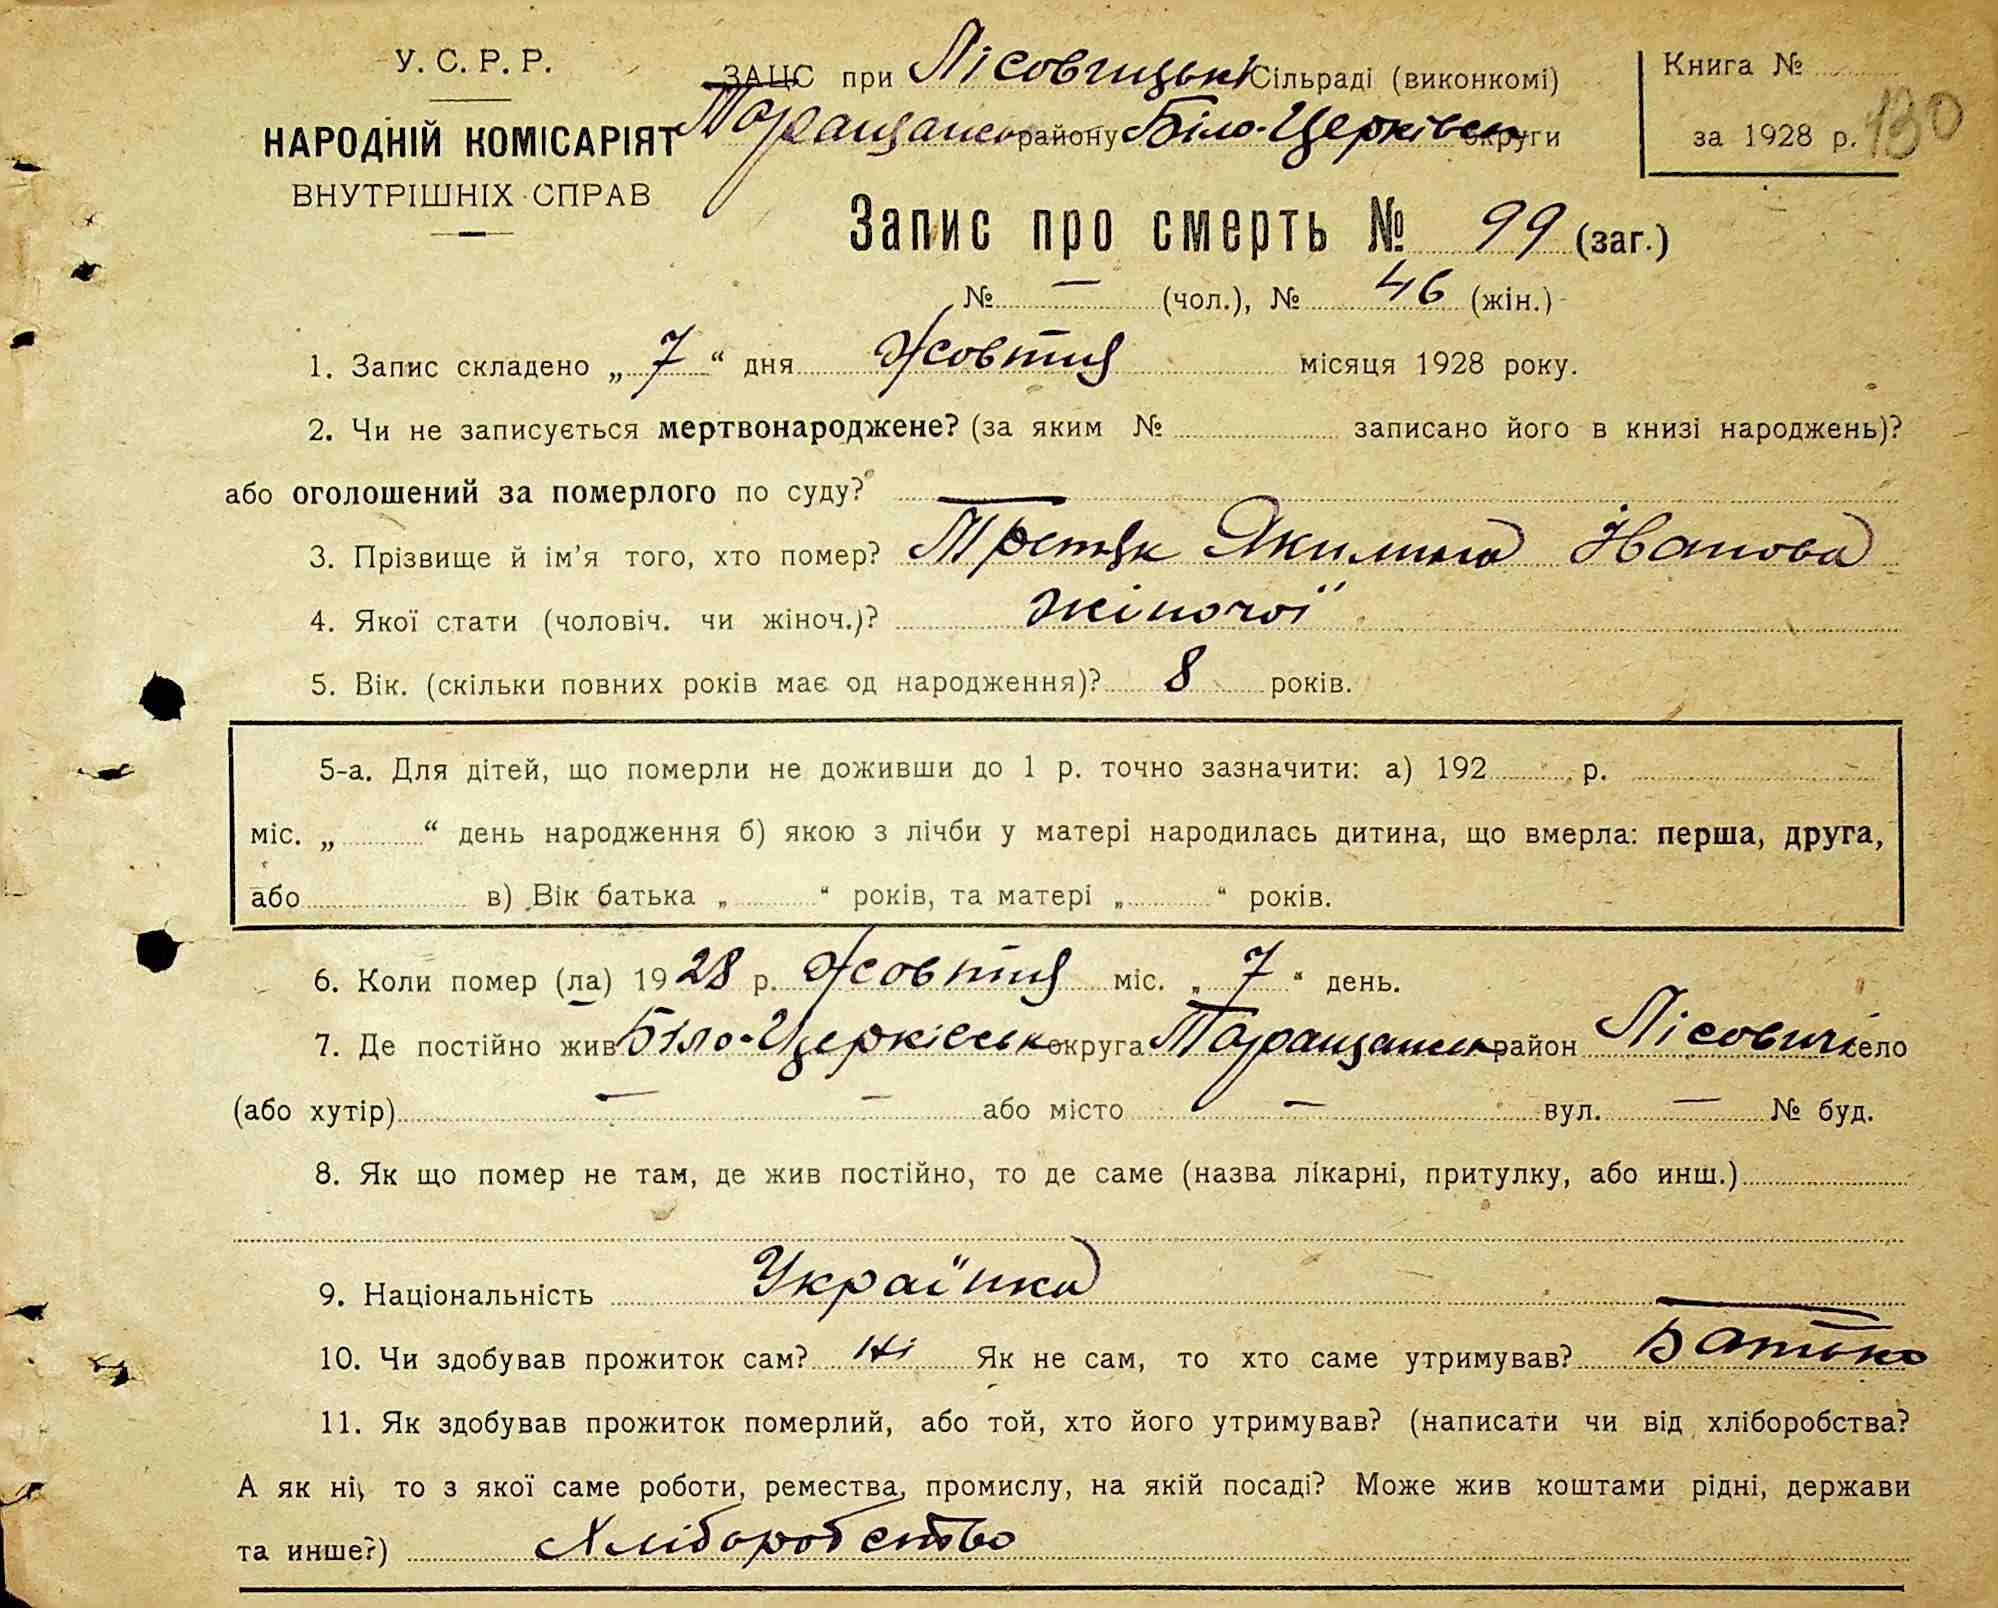 У. С. Р. Р.
НАРОДНІЙ КОМІСАРІЯТ
ВНУТРІШНІХ СПРАВ
ЗАЦС при Лісовицькі Сільраді (виконкомі)
Таращанськ району Біло-Церківськ округи
Книга №
за 1928 р. 130
Запис про смерть № 99 (заг.)
№ — (чол.), № 46 (жін.)
1. Запис складено „ 7 “ дня Жовтня місяця 1928 року.
2. Чи не записується мертвонароджене? (за яким № записано його в книзі народжень)?
або оголошений за померлого по суду?
3. Прізвище й ім’я того, хто помер? Третяк Якилина Іванова
4. Якої стати (чоловіч. чи жіноч.)? жіночої
5. Вік. (скільки повних років має од народження)? 8 років.
5-а. Для дітей, що померли не доживши до 1 р. точно зазначити: а) 192 р.
міс. „ “ день народження б) якою з лічби у матері народилась дитина, що вмерла: перша, друга,
або в) Вік батька „ “ років, та матері „ “ років.
6. Коли помер (ла) 1928 р. Жовтня міс. „ 7 “ день.
7. Де постійно жив Біло-Церківськ округа Таращанськ район Лісовичі село
(або хутір) — — або місто — вул. — № буд.
8. Як що помер не там, де жив постійно, то де саме (назва лікарні, притулку, або инш.)
9. Національність Українка
10. Чи здобував прожиток сам? ні Як не сам, то хто саме утримував? Батько
11. Як здобував прожиток померлий, або той, хто його утримував? (написати чи від хліборобства?
А як ні, то з якої саме роботи, ремества, промислу, на якій посаді? Може жив коштами рідні, держави
та инше?) Хліборобство